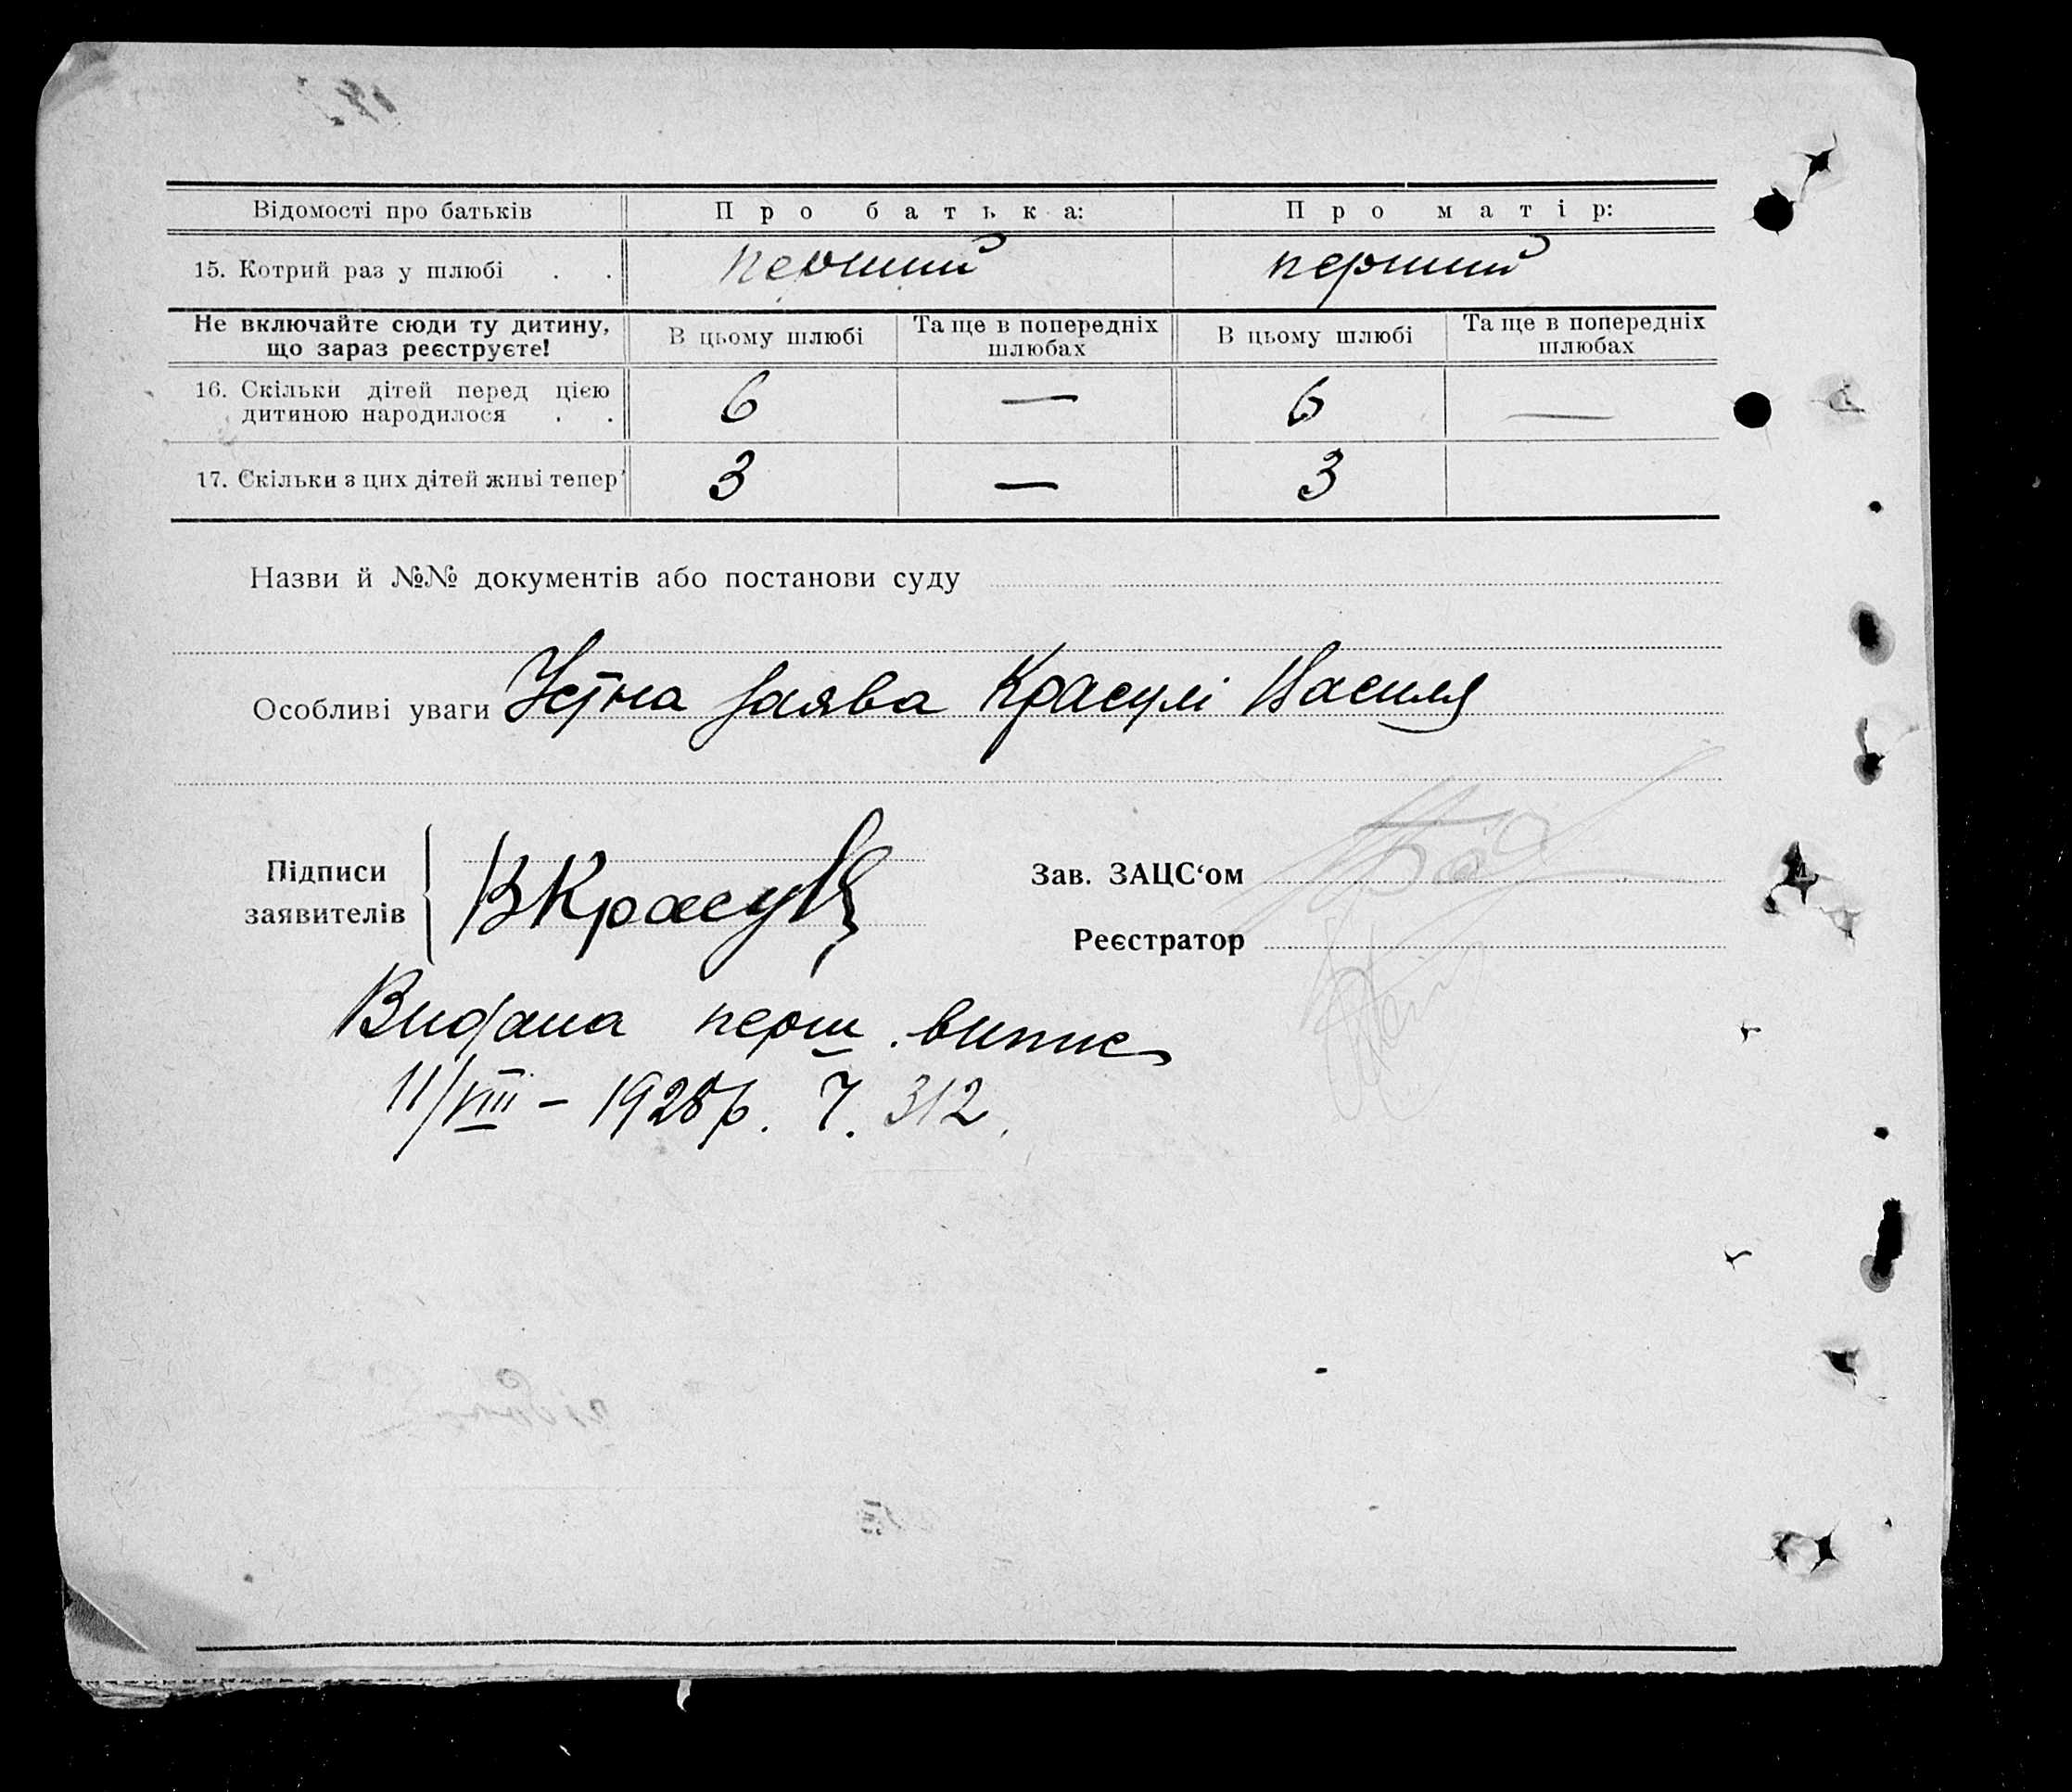 Відомості про батьків Про батька: Про матір:
15. Котрий раз у шлюбі . . перший перший
Не включайте сюди ту дитину, що зараз реєструєте! В цьому шлюбі Та ще в попередніх шлюбах В цьому шлюбі Та ще в попередніх шлюбах
16. Скільки дітей перед цією дитиною народилося . . 6 — 6 —
17. Скільки з цих дітей живі тепер 3 — 3
Назви й №№ документів або постанови суду
Особливі уваги Устна заява Красулі Василя
Підписи заявителів ВКрасуля
Зав. ЗАЦС‘ом
Реєстратор
Видана перш. випис
11/VIII – 1928р. Ч. 312.